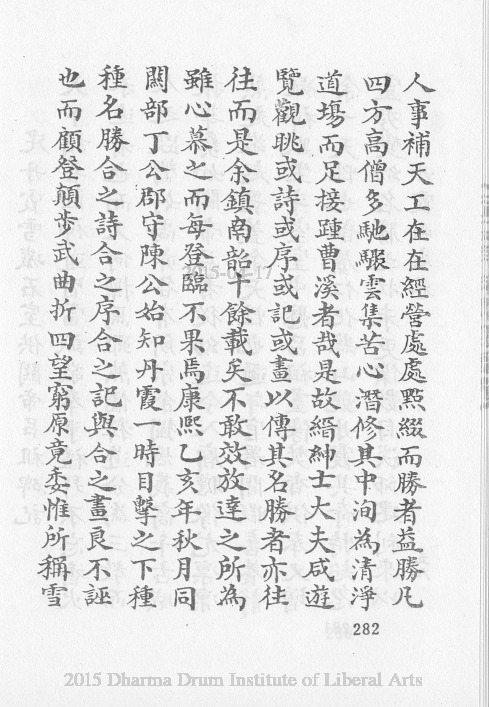 人事補天工在在經營處處點綴而勝者益勝凡
四方高僧多馳驟雲集苦心潛修其中洵為清淨
道場而足接踵曹溪者哉是故縉紳士大夫咸遊
覽觀眺或詩或序或記或畫以傳其名勝者亦往
往而是余鎮南韶十餘載矣不敢效放達之所為
雖心慕之而每登臨不果焉康熙乙亥年秋月同
闗部丁公郡守陳公始知丹霞 時目擊之下種
種名勝合之詩合之序合之記與合之畫良不誣
也而顧登顛步武曲折四望窮原竟委惟所稱雪
282
2015-02-17
2015 Dharma Drum Institute of Liberal Arts